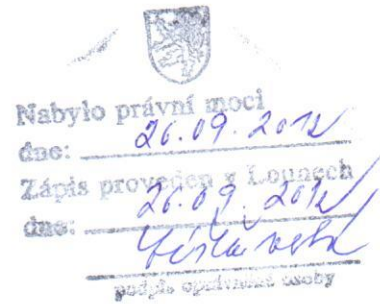 Nabylo právní moci
dne: 26.09.2012
Zápis proveden v Lounech
dne: 26.09.2012
podpis oprávněné osoby